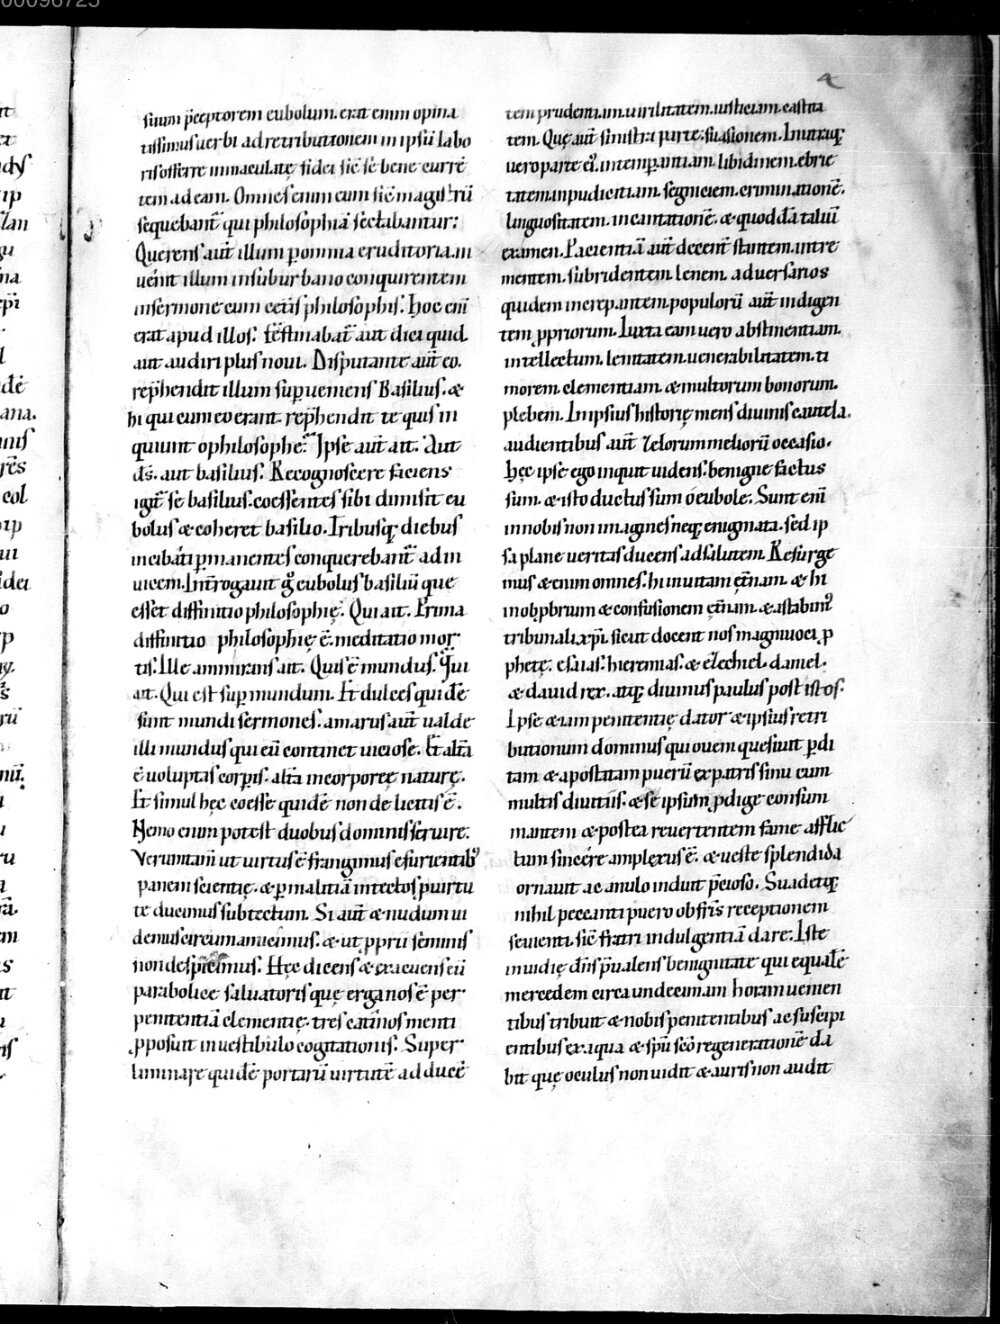 00098725
4
siuum p̄ceptorem eubolum. erat enim opina
tissimus uerbi ad retributionem in ipsū labo
ris offerre inmaculatę fidei sic̄ se bene currē
tem ad eam. Omnes enim eum sic̄ magistrū
sequebant̄ qui philosophiā sectabantur;
Querens aūt illum p omnia eruditoria. in
uenit illum in suburbano conquirentem
in sermone cum cet̄is philosophis. hoc eni̅
erat apud illos. festinabat̄ aūt dici quid
aut audiri plus noui. Disputante aūt eo.
rep̄hendit illum sup̄ueniens Basilius. &
hi qui cum eo erant. rep̄hendit te quis in
quiunt o philosophe. Ipse aūt ait. Aut
d̄s. aut basilius. Recognoscere faciens
igit̄ se basilius. coessentes sibi dimisit eu
bolus & coheret basilio. Tribusq; diebus
incibati p̄manentes conquerebant̄ ad in
uicem. Int̄rogauit g̊ eubolus basiliū que
esset diffinitio philosophię. Qui ait. Prima
diffinitio philosophię ē. meditatio mor
tis. Ille ammirans ait. Quis ē mundus. Qui
ait. Qui est sup mundum. Et dulces quidē
sunt mundi sermones. amarus aūt ualde
illi mundus qui eū continet uiciose. Et alt̄a
ē uoluptas corpis. alt̄a incorporeę naturę.
Et simul hęc coesse quidē non de licitis ē.
Nemo enim potest duobus dominis seruire.
Verumtam̄ ut uirtus ē frangimus esurientib;
panem scientię. & p malitiā intectos p uirtu
tē ducimus sub tectum. Si aūt & nudum ui
demus circumamicimus. & ut pprii seminis
non despicimus. Hęc dicens & exacuens eū
parabolice saluatoris quę erga nos ē per
penitentiā clementię. tres cat̄inos menti
pposuit in uestibulo cogitationis. Super
liminare quidē portarū uirtutē adducē
tem prudentiam. uirilitatem. iusticiam. castita
tem. Quę aūt sinistra parte. suasionem. In utraq;
uero parte ei̅. intemp̄antiam. libidinem. ebrie
tatem. inpudicitiam. segniciem. criminationē.
linguositatem. incantationē. & quoddā taliū
examen. Pacientiā aūt decent̄ stantem. intre
mentem. subridentem. lenem. aduersarios
quidem increpantem. populorū aūt indigen
tem ppriorum. Iuxta eam uero abstinentiam.
intellectum. lenitatem. uenerabilitatem. ti
morem. clementiam. & multorum bonorum.
plebem. In ipsius historię mens diuinis cautela.
audientibus aūt zelorum meliorū occasio.
Hęc ipse ego inquit uidens. benigne factus
sum. & isto ductus sum o eubole. Sunt enī
in nobis non imagines neq; enigmata. sed ip
sa plane ueritas ducens ad salutem. Resurge
mus & enim omnes. hi in uitam et̄nam. & hi
in obpbrium & confusionem et̄nam. & astabim̄
tribunali xp̄i. sicut docent nos magniuoci p
phetę. esaias. hieremias. & ezechiel. daniel.
& dauid rex. atq; diuinus paulus post istos.
Ipse etiam penitentię dator & ipsius retri
butionum dominus qui ouem quesiuit p̄di
tam. & apostatam puerū ex patris sinu cum
multis diuitiis. & se ipsum pdige consum
mantem & postea reuertentem fame afflic
tum sincere amplexus ē. & ueste splendida
ornauit ac anulo induit p̄cioso. Suadetq;
nihil peccanti puero ob fr̄is receptionem
seuienti. sic̄ fratri indulgentiā dare. Iste
inuidię dn̄s p̄ualens benignitate qui equalē
mercedem circa undecimam horam uenien
tibus tribuit & nobis penitentibus ac suscipi
entibus ex aqua & sp̄u sc̄o regenerationē da
bit quę oculus non uidit & auris non audit